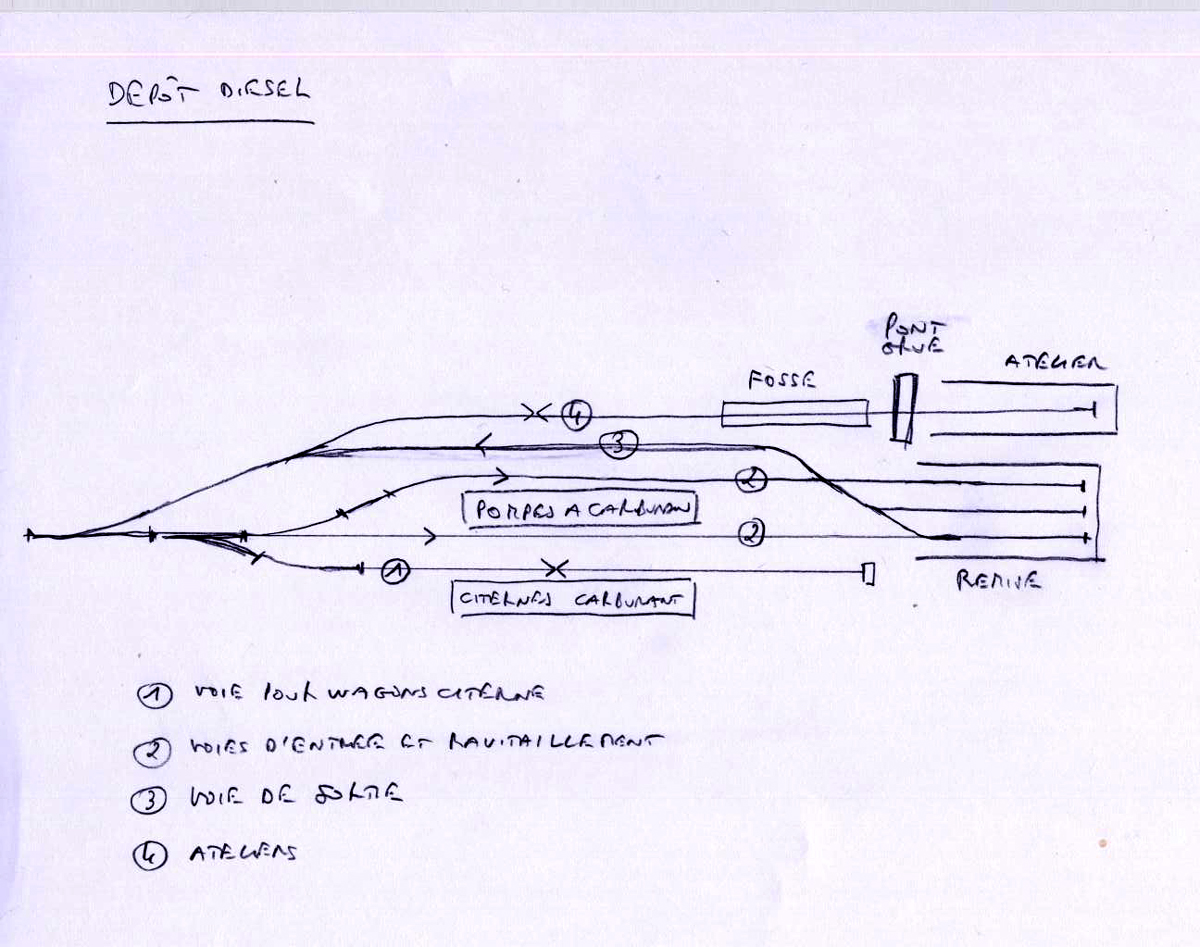 DEPÔT DIESEL
PONT
GRUE
ATELIER
FOSSE
4
3
2
POMPES A CARBURANT
2
1
CITERNES CARBURANT
REMISE
1 VOIE POUR WAGONS CITERNE
2 VOIES D'ENTREE ET RAVITAILLEMENT
3 VOIE DE SORTIE
4 ATELIERS